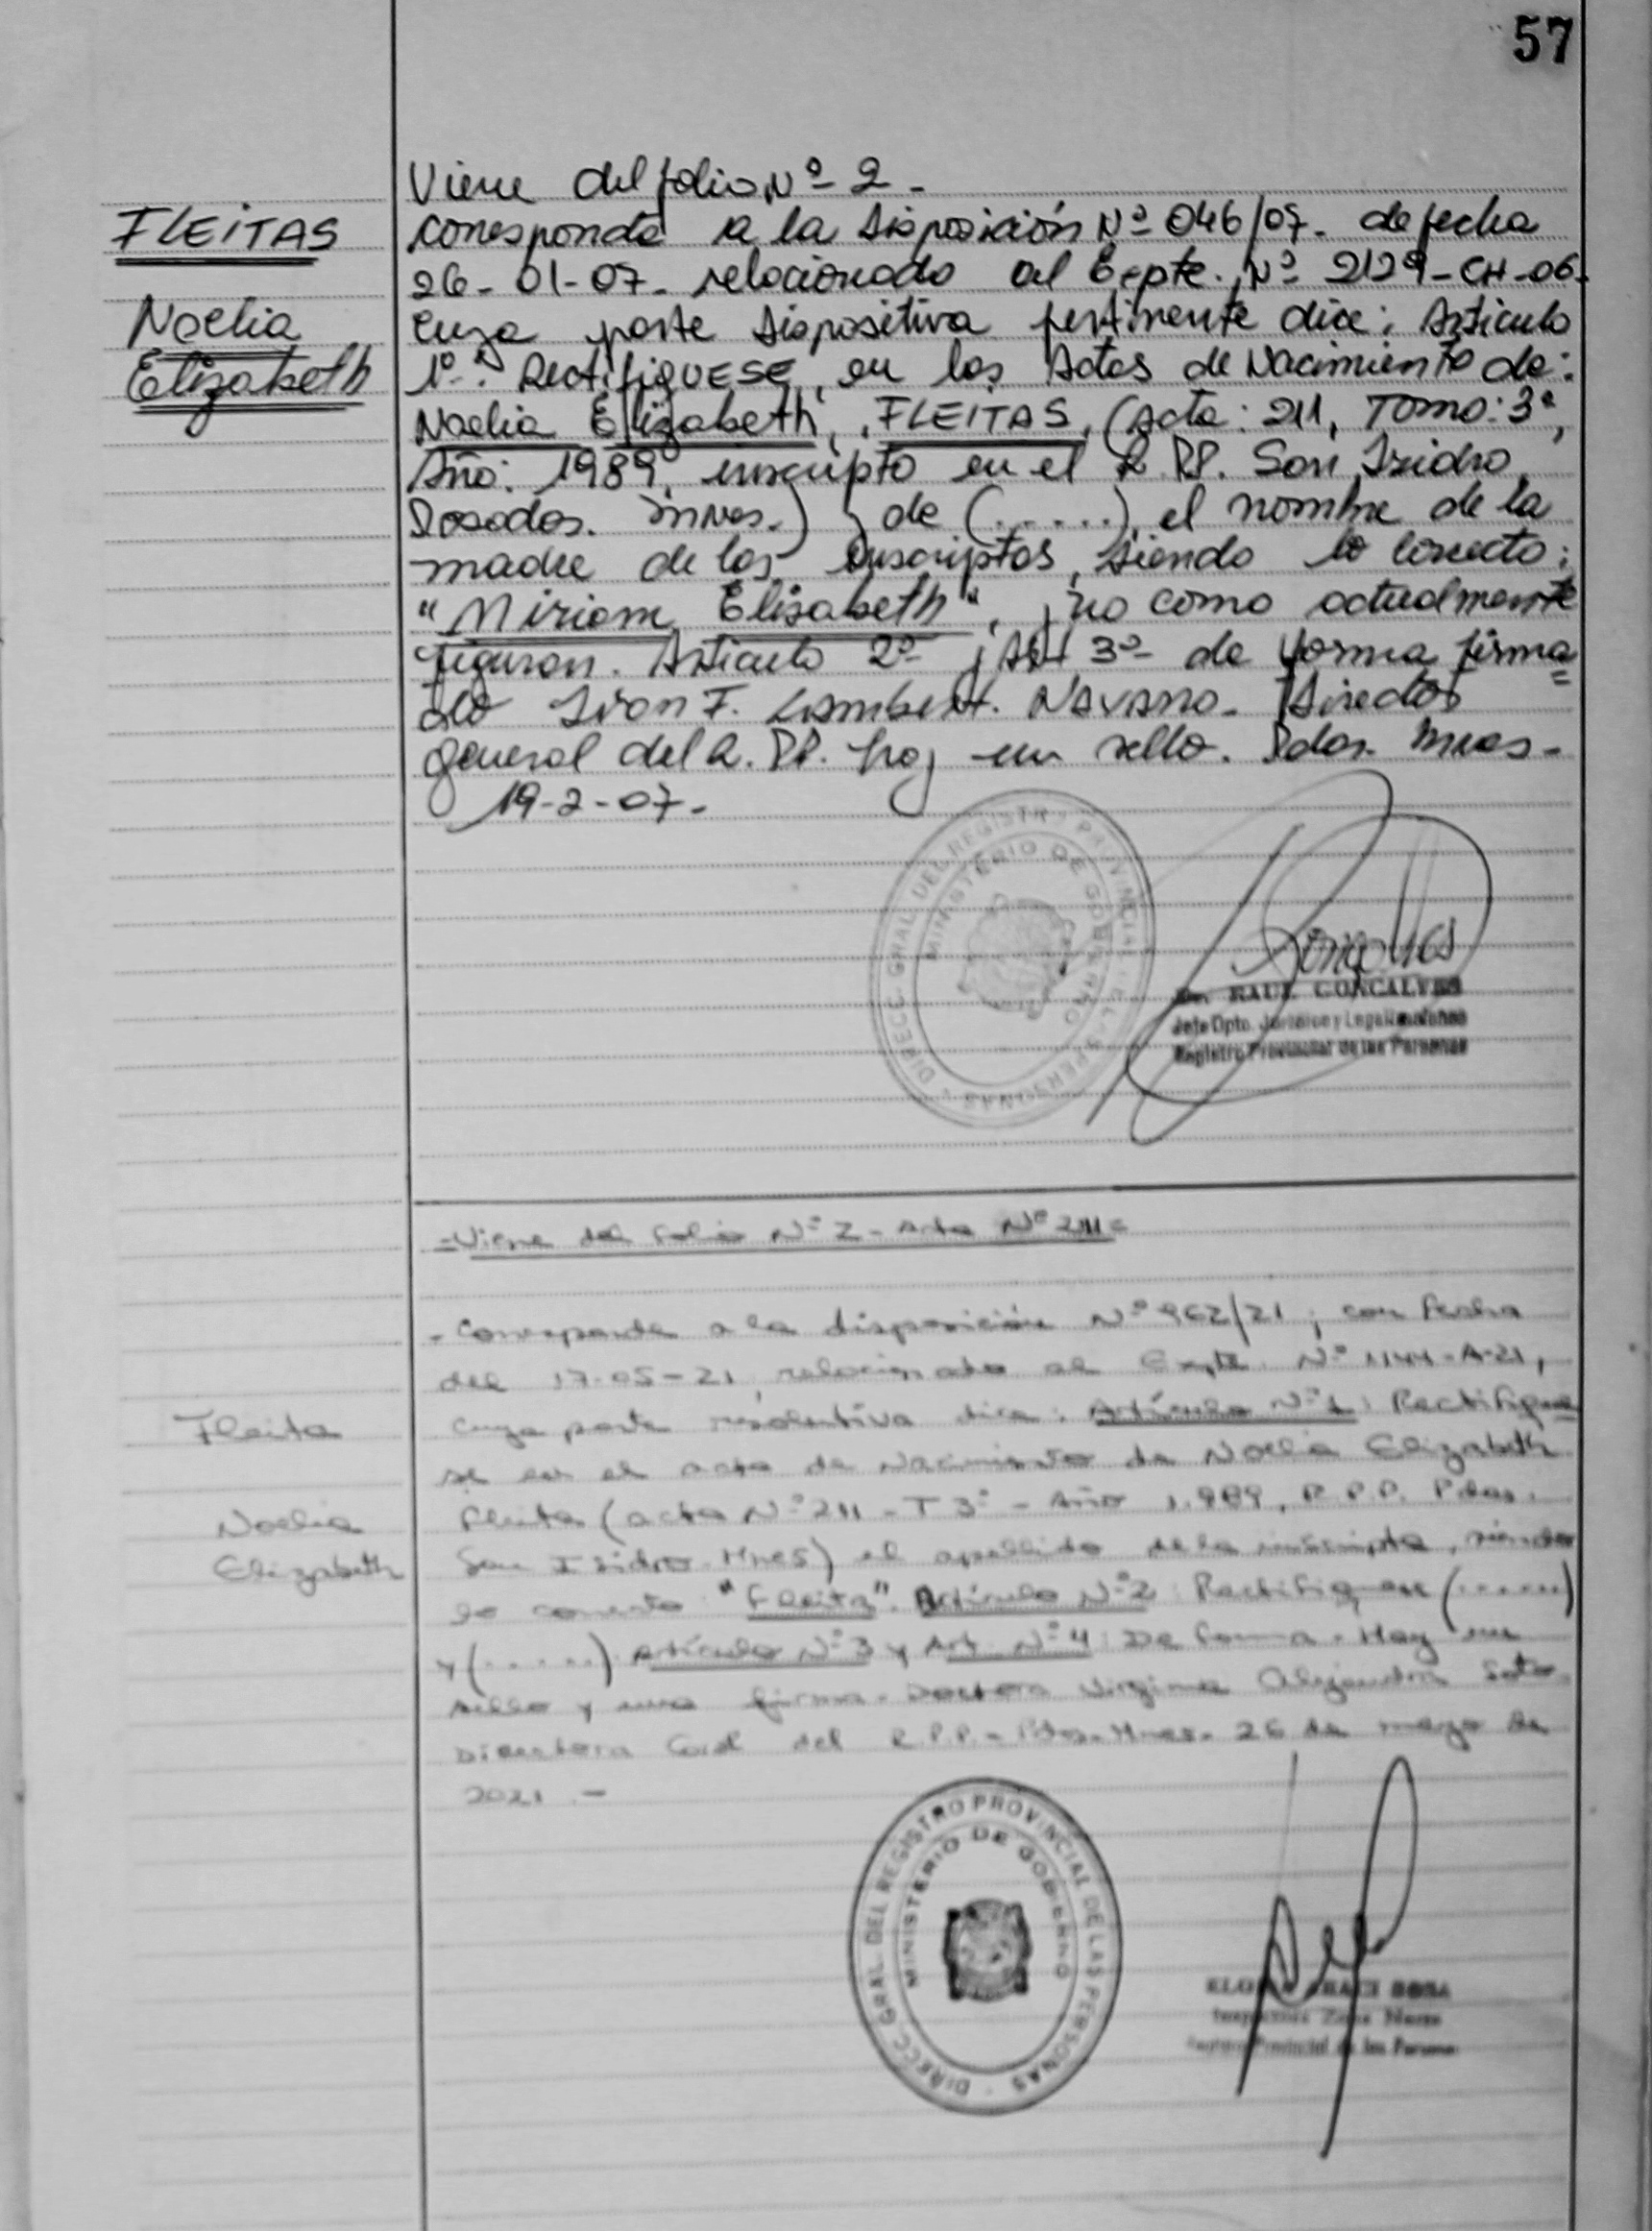 57
Viene del folio Nº 2 -
FLEITAS
Corresponde a la Disposición Nº 046/07- de fecha
26-01-07- relacionado al Expte. Nº 2129-CH-06-
Noelia
cuya parte dispositiva pertinente dice: Artículo
Elizabeth
1º-: Rectifiquese, en las Actas de Nacimiento de:
Noelia Elizabeth, FLEITAS, (Acta: 211, Tomo: 3º,
Año: 1989, inscripto en el R.PP. San Isidro
Posadas. Mnes.) de (.....), el nombre de la
madre de los inscriptos, siendo lo correcto:
"Miriam Elisabeth", y no como actualmente
figuran. Artículo 2º- y Art 3º- de forma firma=
do F. Lambert. Navarro- Director
general del R. PP. hay un sello. Pdas. Mnes-
19-2-07-
DIRECC. GRAL. DEL REGISTRO PROVINCIAL DE L. PERSONAS
MINISTERIO DE GOBIERNO
RAUL GONCALVES
Jefe Dpto. Jurídico y Legalizaciones
Registro Provincial de las Personas
-Viene del folio Nº 2 - Acta Nº 211=
- Corresponde a la disposición Nº 962/21, con fecha
del 17-05-21, relacionado al Expte. Nº 1144-A-21,
Fleita
cuya parte resolutiva dice: Artículo Nº 1: Rectifíque=
se en el acta de Nacimiento de Noelia Elizabeth
Noelia
Fleita (acta Nº 211 - T 3º - Año 1.989, R.P.P. Pdas.
Elizabeth
San Isidro-Mnes) el apellido de la inscripta, siendo
lo correcto "Fleita". Artículo Nº 2: Rectifiquese (......)
y (......) Artículo Nº 3 y Art. Nº 4: De forma. Hay un
sello y una firma. Doctora Virginia Alejandra Soto.
Directora Gral del R.P.P. - Pdas-Mnes- 26 de mayo de
2021.-
DIRECC. GRAL. DEL REGISTRO PROVINCIAL DE LAS PERSONAS
MINISTERIO DE GOBIERNO
SOSA
Zona
Registro Provincial de las Personas